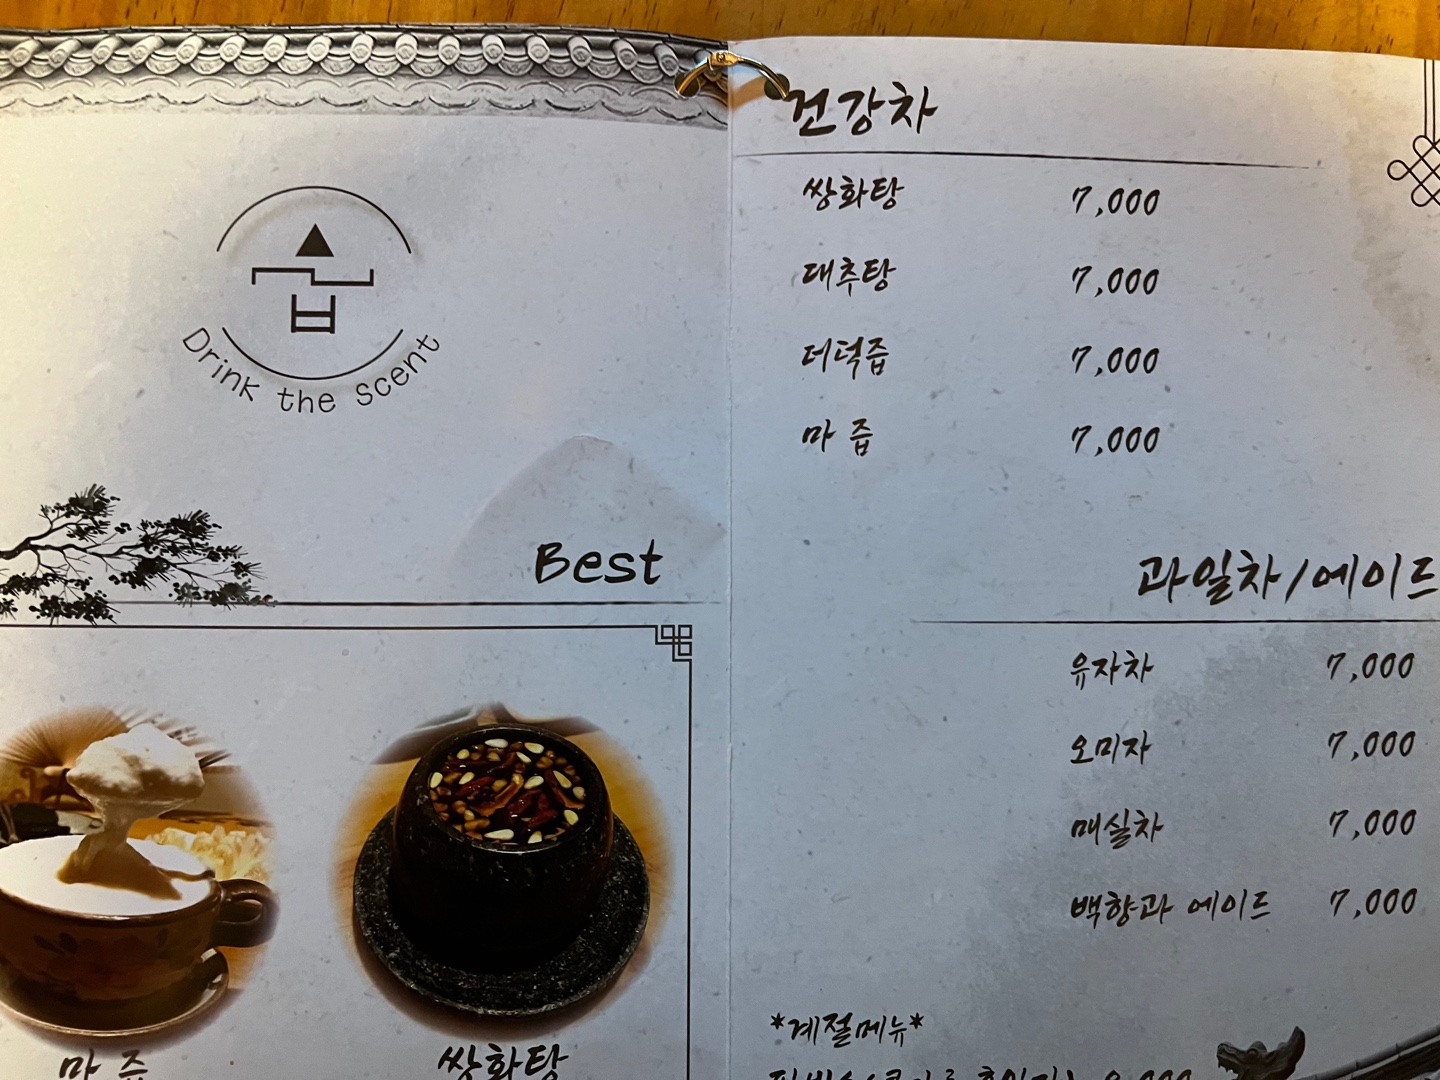 Drink the scent
Best
마 즙
쌍화탕
건강차
쌍화탕 7,000
대추탕 7,000
더덕즙 7,000
마 즙 7,000
과일차/에이드
유자차 7,000
오미자 7,000
매실차 7,000
백향과 에이드 7,000
*계절메뉴*